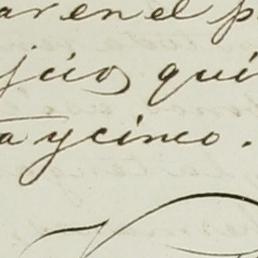 ar en el p
jcio, qui
a y cinco.